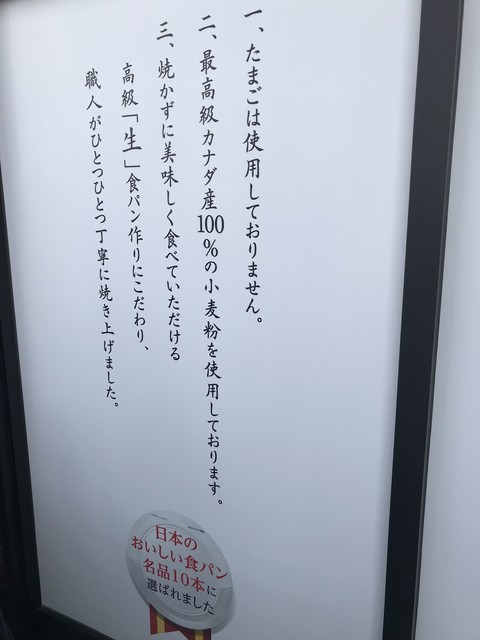 一、たまごは使用しておりません。
二、最高級カナダ産100%の小麦粉を使用しております。
三、焼かずに美味しく食べていただける
高級「生」食パン作りにこだわり、
職人がひとつひとつ丁寧に焼き上げました。
日本の
おいしい食パン
名品10本に
選ばれました